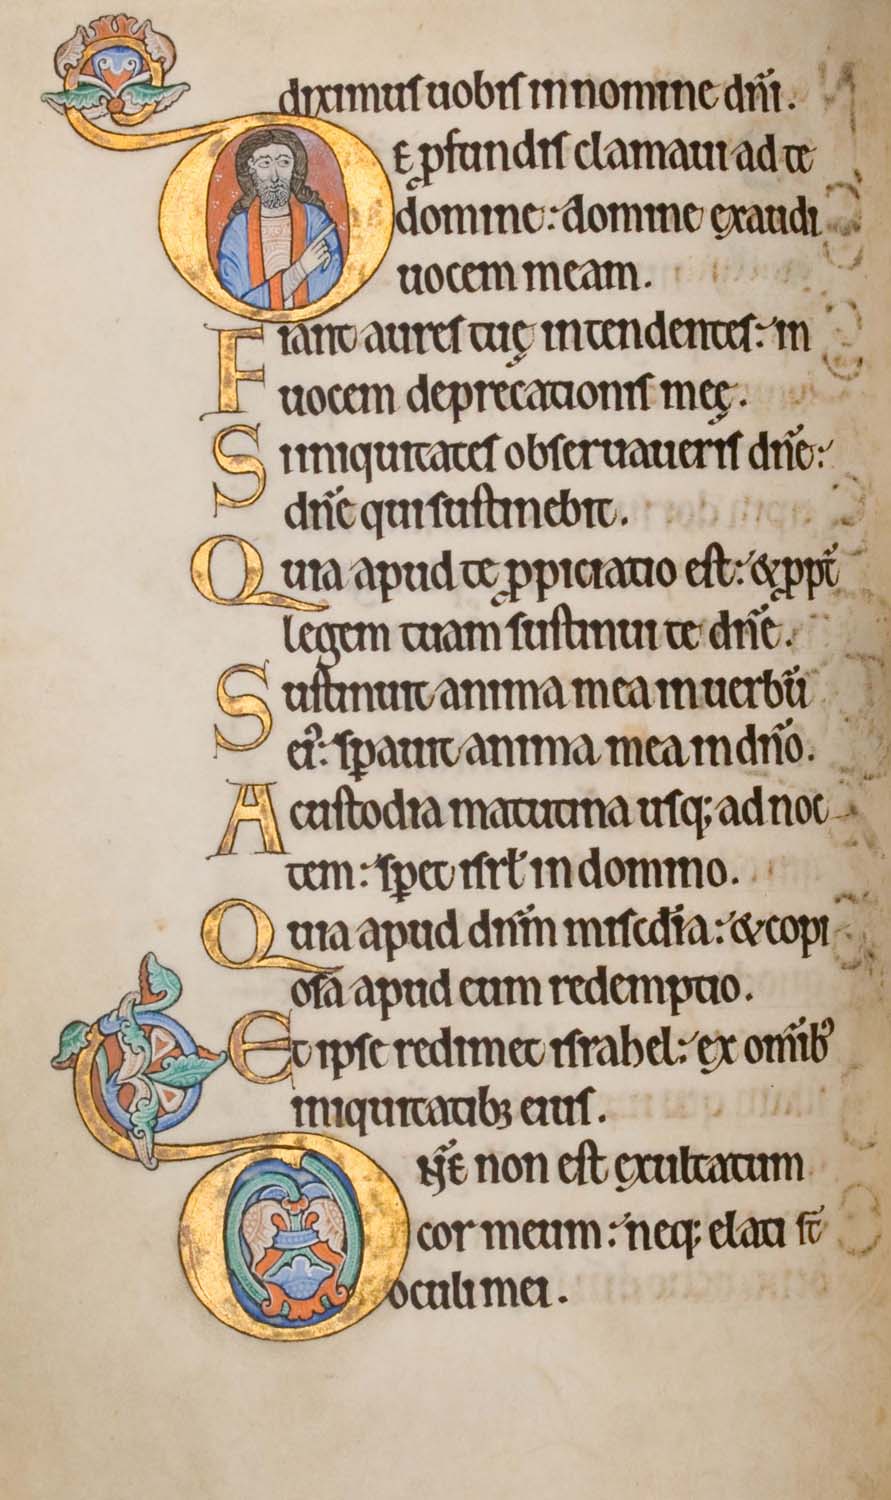 diximus uobis in nomine dñi.
DE ꝓfundis clamaui ad te
domine: domine exaudi
uocem meam.
Fiant aures tuę intendentes: in
uocem deprecationis meę.
Si iniquitates obseruaueris dñe:
dñe quis sustinebit.
Quia apud te ꝓpiciatio est: & ꝓpt̄
legem tuam sustinui te dñe.
Sustinuit anima mea in uerbū
ei᾽: sꝑauit anima mea in dño.
A custodia matutina usq; ad noc
tem: sꝑet isrl̄ in domino.
Quia apud dñm misc̄dia: & copi
osa apud eum redemptio.
Et ipse redimet israhel: ex om̄ib᾽
iniquitatibꝫ eius.
DÑE non est exultatum
cor meum: neq; elati st̄
oculi mei.